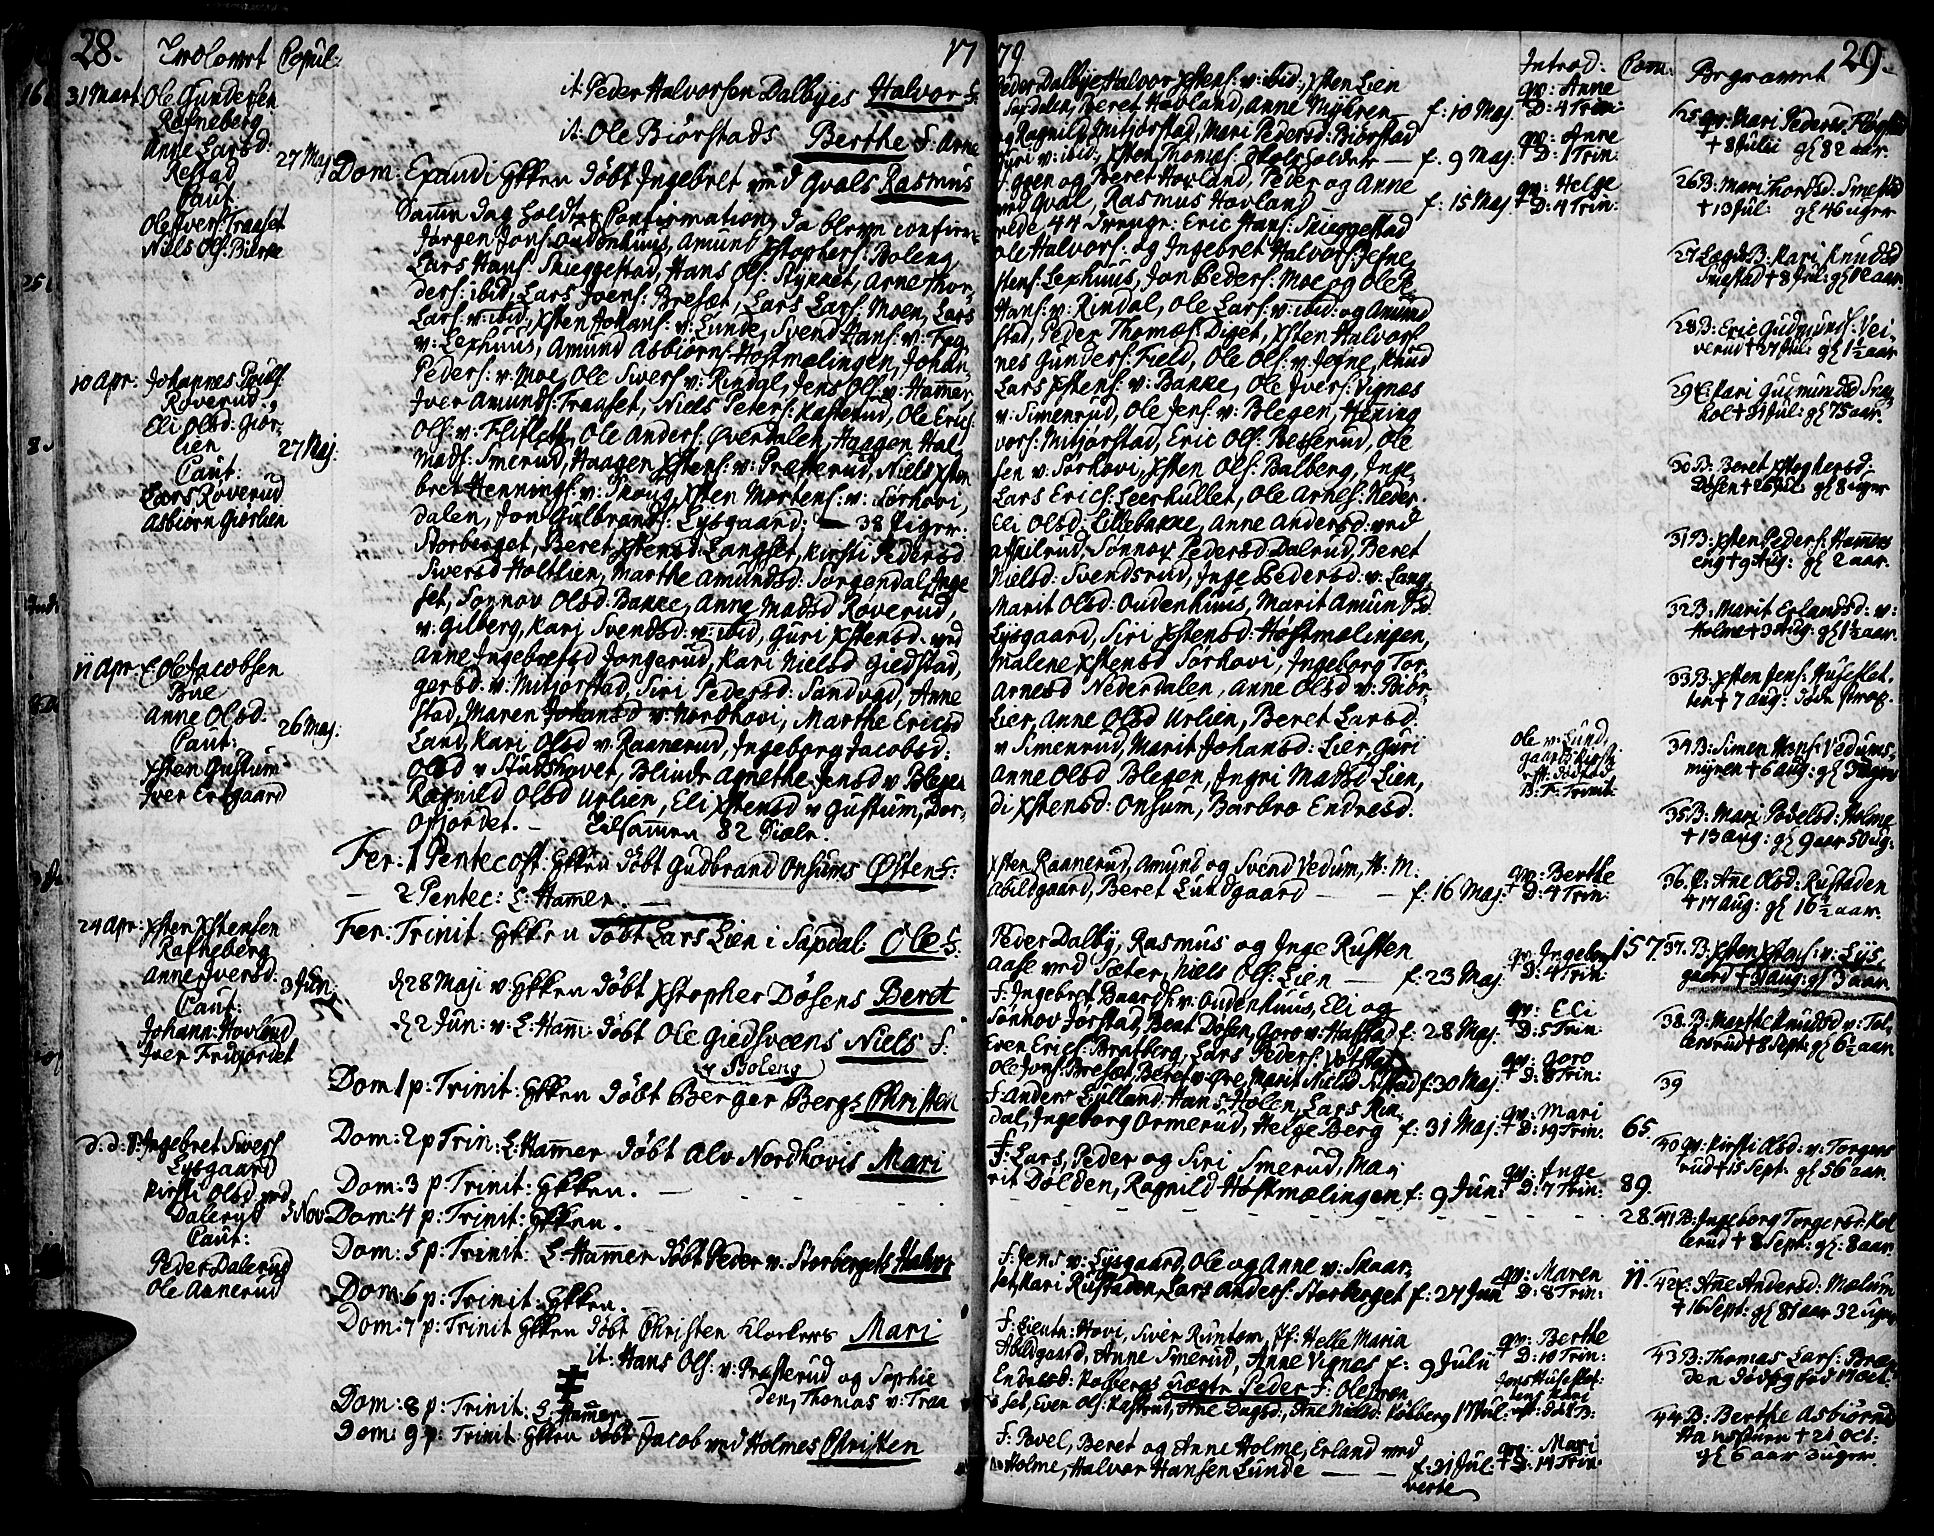 28. Trolovet Copul: 17
31 Mart: Ole Gundersen
Rafneberg
Anne Larsd:
Restad
Caut:
Ole Iversf: Traaset
Niels Olsf: Bierke
27 Maj
10 Apr: Johannes
Roverud
Eli Olsd: Giør-
lien
Caut:
Lars Roverud
Asbiørn Giørlien
27 Maj:
11 Apr: E. Ole Jacobsen
Bue
Anne Olsd:
Caut:
Xsten Gustum
Iver Ersgaard
26 Maj:
24 Apr: Xsten Xstensen
Rafneberg
Anne Iversd:
Caut:
Johann: Hovland
Iver Fridfordet
3 Jun:
Ingebret Siversf
Lysgaard
Kirsti Olsd: ved
Dalerud
Caut:
Peder Dalerud
Ole Aannerud
5 Nov
it: Peder Halvorsen Dalbyes Halvor f:
it: Ole Biørstads Berthe f: Arne
Dom: Exaudi Gkken døbt Ingebret ved Qvals Rasmus
Samme dag holdtes Confirmation, da bleve confirme-
Jørgen Jonsf: Oudenhuus, Amund Xstophersf: Boleng,
Lars Hansf: Skieggestad, Hans Olsf: Stykket, Arne Thor-
dersf: ibid, Lars Joensf: Bresæt, Lars Larsf: Moen, Lars
Larsf: v: ibid:, Xsten Johansf: v: Lunde, Svend Hansf: v: Fog-
v: Lexhuus, Amund Asbiørnsf: Høstmælingen, Johan
Pedersf: v: Moe, Ole Siversf v: Rindal, Jens Olsf: v: Hammer,
Iver Amundsf: Traaset, Niels Petersf: Kasterud, Ole Ericsf:
Olsf: v: Fliflet, Ole Andersf: Øverdalen, Haagen Hal-
madsf: Smerud, Haagen Xstensf: v: Præsterud, Niels Xsten
bret Henningsf: v: Skoug, Xsten Mortensf: v: Sørhovi,
dalen, Jon Gulbrandsf: Lysgaard: — 38 Piger:
Storberget, Beret Xstensd: Langset, Kirsti Pedersd
Siversd Holtlien, Marthe Amundsd: Sørgendal, Inge
set, Sønnov Olsd: Bakke, Anne Madsd Roverud,
v: Gilberg, Kari Svendsd: v: ibid, Guri Xstensd: ved
Anne Ingebretsd Jongerud, Kari Nielsd Giedstad,
gersd: v: Mitjorstad, Siri Pedersd: Sandvad, Anne
stad, Maren Johansd v: Nordhovi, Marthe Ericsd
Land, Kari Olsd v: Raanerud, Ingeborg Jacobsd:
Olsd v Studshover, Blinde Agnethe Jensd v: Blegen
Ragnild Olsd Urlien, Eli Xstensd v Gustum, Bor-
Opjordet. — Tilsammen 82 Siæle.
Fer: 1 Pentecost: Gkken døbt Gudbrand Onsums Østen f:
— 2 Pentec: L: Hamer. —
Fer: Trinit: Gkken døbt Lars Lien i Saxdal: Ole f:
d 28 Maji v: Gkken døbt Xstopher Døsens Beret
d 2 Jun: v: L: Ham: døbt Ole Giedsveens Niels f:
v Boleng
Dom 1 p: Trinit: Gkken døbt Berger Bergs Christen
Dom: 2 p Trin: L: Hamer døbt Alv Nordhovis Mari
Dom: 3 p: Trinit: Gkken. —
Dom: 4 p: Trinit: Gkken.
Dom: 5 p: Trinit: L: Hamer døbt Peder v: Storbergets Halvor
Dom: 6 p: Trinit: Gkken.
Dom: 7 p: Trinit Gkken døbt Christen Klockers Mari
it: Hans Olsf: v: Præsterud og Sophie
den, Thomas v: Traa
Dom: 8 p: Trinit: L: Hamer —
Dom: 9 p: Trinit: Gkken døbt Jacob ved Holmes Christen
79 Introd: Com: Begravet 29.
Peder Dalbye, Halvor Xstensf: v: ibid:, Xsten Lien
Saxdalen, Beret Hovland, Anne Myhren f: 10 Maj. qv: Anne D: 4 Trin:
og Ragnild Mitjørstad, Mari Pedersd: Biørstad
Guri v: ibid:, Xsten Thomasf: — f: 9 Maj: qv: Anne D: 1 Trin:
og Beret Hovland, Peder og Anne
ved Qval, Rasmus Hovland — f: 15 Maj: qv: Helge D: 4 Trin:
rede, 44 Drenge: Eric Hansf: Skieggestad
Ole Halvorsf: og Ingebret Halvorsf: Jefne,
stensf: Lexhuus, Jon Pedersf: Moe og Ole
Hansf: v: Rindal, Ole Larsf: v: ibid: og Amund
stad, Peder Thomasf: Diget, Xsten Halvorsf
nes Gundersf: Field, Ole Olsf: v: Jefne, Knud
Lars Xstensf: v: Bakke, Ole Iversf: Vignæs
v: Simenrud, Ole Jensf: v: Blegen, Hening
vorsf: Mitjørstad, Eric Olsf: Besserud, Ole
sen v: Sørhovi, Xsten Olsf: Balberg, Inge-
Lars Ericsf: Leerhullet, Ole Arnesf: Neder-
Eli Olsd: Lillebakke, Anne Andersd: ved
Askilrud, Sønnov Pedersd Dalrud, Beret
Nielsd: Svendsrud, Inge Pedersd: v: Lang-
Marit Olsd: Oudenhuus, Marit Amundsd
Lysgaard, Siri Xstensd: Høstmælingen,
Malene Xstensd Sørhovi, Ingeborg Tor-
Arnesd Nederdalen, Anne Olsd v: Biør-
Lier, Anne Olsd Urlien, Beret Larsd:
v Simenrud, Marit Johansd: Lier, Guri
Anne Olsd Blegen, Ingri Madsd Lien,
di Xstensd: Onsum, Barbro Endresd:
Ole v: Lund-
D: F: Trinit:
Xsten Raanerud, Amund og Svend Vedum, H: M:
Abildgaard, Beret Lundgaard — f: 16 Maj: qv: Berthe D: 4 Trin:
Peder Dalby, Rasmus og Inge Rusten
Aase ved Sæter, Niels Olsf: Lien — f: 23 Maj: qv: Ingeborg D: 4 Trin: 157.
f: Ingebret Baardsf: v: Oudenhuus, Eli og
Sønnov Jørstad, Beat Dosen, Goro v: Hafstad f: 28 Maj: qv: Eli D: 5 Trin:
Even Ericsf: Bratberg, Lars Pedersf:
Ole Jonsf: Bresæt, Beret v: Øvre, Marit Nielsd f: 30 Maj: qv: Goro D: 8 Trin:
f: Anders Lylland, Hans Holen, Lars Rin-
dal, Ingeborg Ormerud, Helge Berg f: 31 Maj: qv: Mari D: 19 Trin: 65.
f: Lars, Peder og Siri Smerud, Mar-
rit Dolden, Ragnild Høstmælingen f: 9 Jun: qv: Inge D: 7 Trin: 89.
28.
f: Jens v: Lysgaard, Ole og Anne v: Skaar-
set, Kari Rustaden, Lars Andersf: Storberget f: 27 Jun qv: Maren D: 8 Trin: 11.
f: Lieutn: Hovi, Siver Runtom, Jf: Helle Maria
Abildgaard, Anne Smerud, Anne Vignæs f: 9 Julii qv: Berthe D: 10 Trin:
Endresd: Kolbergs uægte Peder f: Ole
set, Even Olsf: Kastrud, Ane Dagsd:, Ane Nielsd: Kolberg 17 Jul:
f: Povel, Beret og Anne Holme, Erland ved
Holme, Halvor Hansen Lunde — f: 21 Jul: qv: Mari D: 14 Trin:
verte
25 qv: Mari Pedersd Flogstad
† 8 Julii gl 82 aar.
26 B: Mari Thorsd: Smestad
† 13 Jul: gl 46 uger
27 Lægds B: Kari Knudsd
Smestad † 8 Jul: gl 12 aar.
28 B: Eric Gudmundsf: Vei-
verud † 27 Juli gl 1½ aar
29 E: Kari Gudmundsd Sne-
hol † 31 Jul: gl 75 aar.
30 B: Beret Xstophersd:
Dosen † 26 Juli gl 8 uger
31 B: Xsten Pedersf: Hammers
eng † 9 Aug: gl 2 aar.
32 B: Marit Erlandsd: v:
Holme † 3 Aug: gl 1½ aar
33 B: Xsten Jensf: Huseflet-
ten † 7 Aug:
34 B: Simen Hansf: Vedums-
myren † 6 Aug: gl 3 uger
35 B: Mari Povelsd: Holme
† 13 Aug: gl 9 aar 50 ug:
36. P: Ane Olsd: Rustaden
† 17 Aug: gl 16½ aar.
37. B: Xsten Xstensf: v: Lys-
gaard † 31 Aug: gl 3 aar
38. B: Marthe Knudsd v: Tol-
lersrud † 8 Sept: gl 6½ aar
39
40 qv: Kirsti Olsd: v: Torgers
rud † 15 Sept: gl 56 aar.
41 B: Ingeborg Torgersd: Kol-
lerud † 8 Sept: gl: 8 aar
42 E: Ane Andersd: Mælum
† 16 Sept: gl 81 aar 32 uger
43 B: Thomas Larsf: Bræn-
den dødfød 17 Oct:
44 B: Berthe Asbiørnsd
† 21 Oct:
gl 6 aar 3 uger.